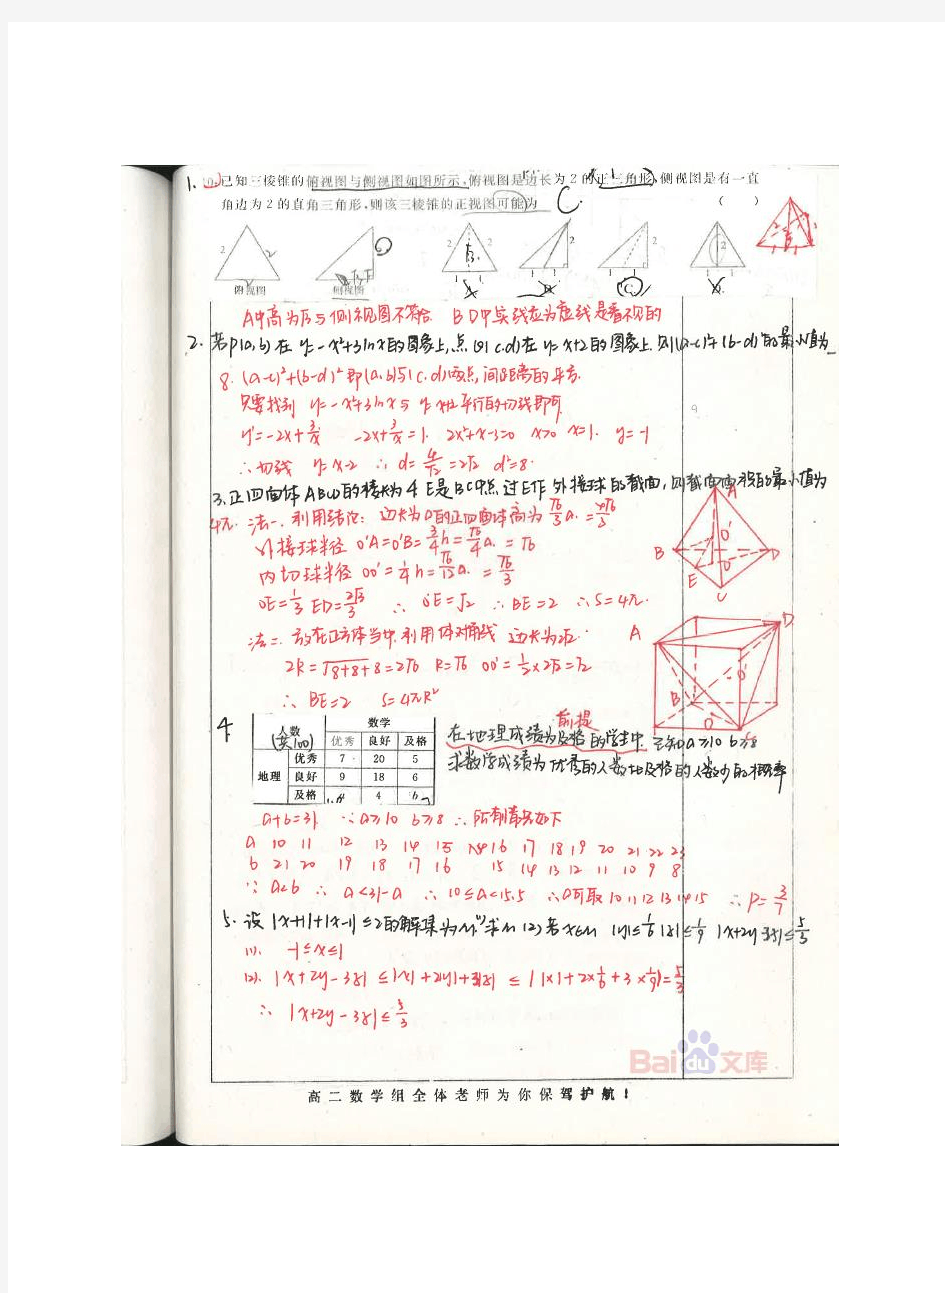 1. 10.已知三棱锥的俯视图与侧视图如图所示,俯视图是边长为2的正三角形,侧视图是有一直
角边为2的直角三角形,则该三棱锥的正视图可能为 C ( )
俯视图 侧视图 A. B. C. D.
A中高为√3与侧视图不符合 B D中实线应为虚线是看不见的
2. 若P(a,b)在y=-x²+3lnx的图象上,点Q(c,d)在y=x+2的图象上.则(a-c)²+(b-d)²的最小值为
8. (a-c)²+(b-d)²即(a,b)与(c,d)两点间距离的平方.
只要找到 y=-x²+3lnx与y=x+2平行的切线即可
y'=-2x+3/x -2x+3/x=1. 2x²+x-3=0 x>0 x=1. y=-1
∴切线 y=x-2 ∴d=4/√2=2√2 d²=8.
3.正四面体ABCD的棱长为4 E是BC中点 过E作外接球的截面,则截面面积的最小值为
4π. 法一. 利用结论: 边长为a的正四面体高为√6/3a.=4√6/3
外接球半径 O'A=O'B=3/4h=√6/4a.=√6
内切球半径 OO'=1/4h=√6/12a.=√6/3
OE=1/3ED=2√3/3 ∴O'E=√2 ∴BE=2 ∴S=4π.
法二. 放在正方体当中,利用体对角线 边长为2√2.
2R=√8+8+8=2√6 R=√6 OO'=1/2×2√2=√2
∴BE=2 S=4πR²
A B C D E O O'
A B C D O O'
4
人数 数学
优秀 良好 及格
地理 优秀 7 20 5
良好 9 18 6
及格 a 4 b
前提
在地理成绩为及格的学生中 已知a≥10 b≥8
求数学成绩为优秀的人数比及格的人数少的概率
a+b=31 ∵a≥10 b≥8 ∴所有情况如下
a 10 11 12 13 14 15 16 17 18 19 20 21 22 23
b 21 20 19 18 17 16 15 14 13 12 11 10 9 8
∵a<b ∴a<31-a ∴10≤a<15.5 ∴a可取10 11 12 13 14 15 ∴P=3/7
5. 设|x+1|+|x-1|≤2的解集为M.(1)求M (2)若x∈M |y|≤1/6 |z|≤1/9 |x+2y-3z|≤5/3
(1). -1≤x≤1
(2). |x+2y-3z|≤|x|+|2y|+|3z|≤|1×1+2×1/6+3×1/9|=5/3
∴|x+2y-3z|≤5/3
Bai du 文库
高二数学组全体老师为你保驾护航!